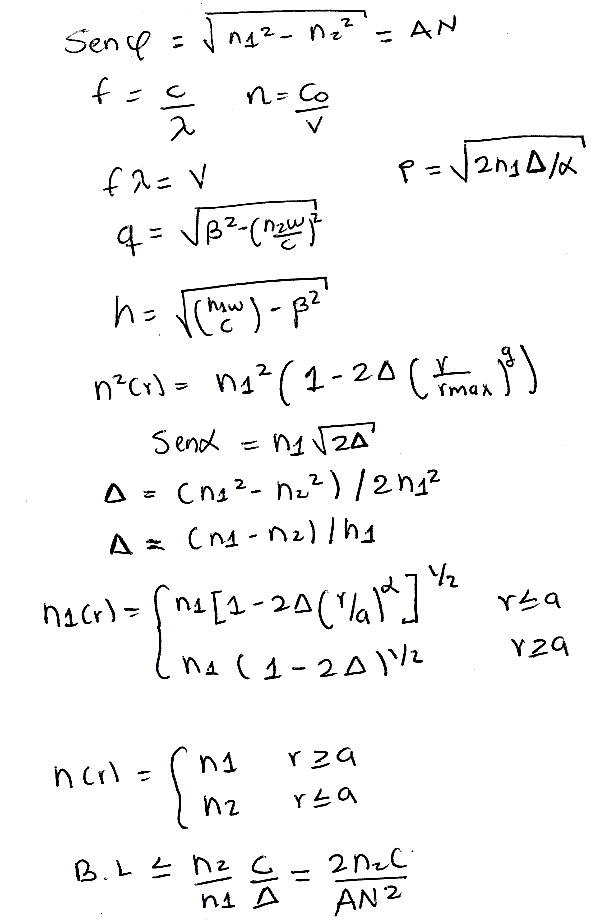 Sen φ = √(n1² - n2²) = AN
f = c/λ   n = Co/V
fλ = V   P = √(2n1Δ/α)
q = √(β² - (n2w/c)²)
h = √((n1w/c) - β²)
n²(r) = n1² (1 - 2Δ (r/rmax)^g)
Senα = n1 √(2Δ)
Δ = (n1² - n2²) / 2n1²
Δ ≈ (n1 - n2) / n1
n1(r) = { n1 [1 - 2Δ(r/a)^α]^1/2   r ≤ a
n1 (1 - 2Δ)^1/2   r ≥ a
n(r) = { n1   r ≥ a
n2   r ≤ a
B.L ≤ n2/n1 c/Δ = 2n2C/AN2